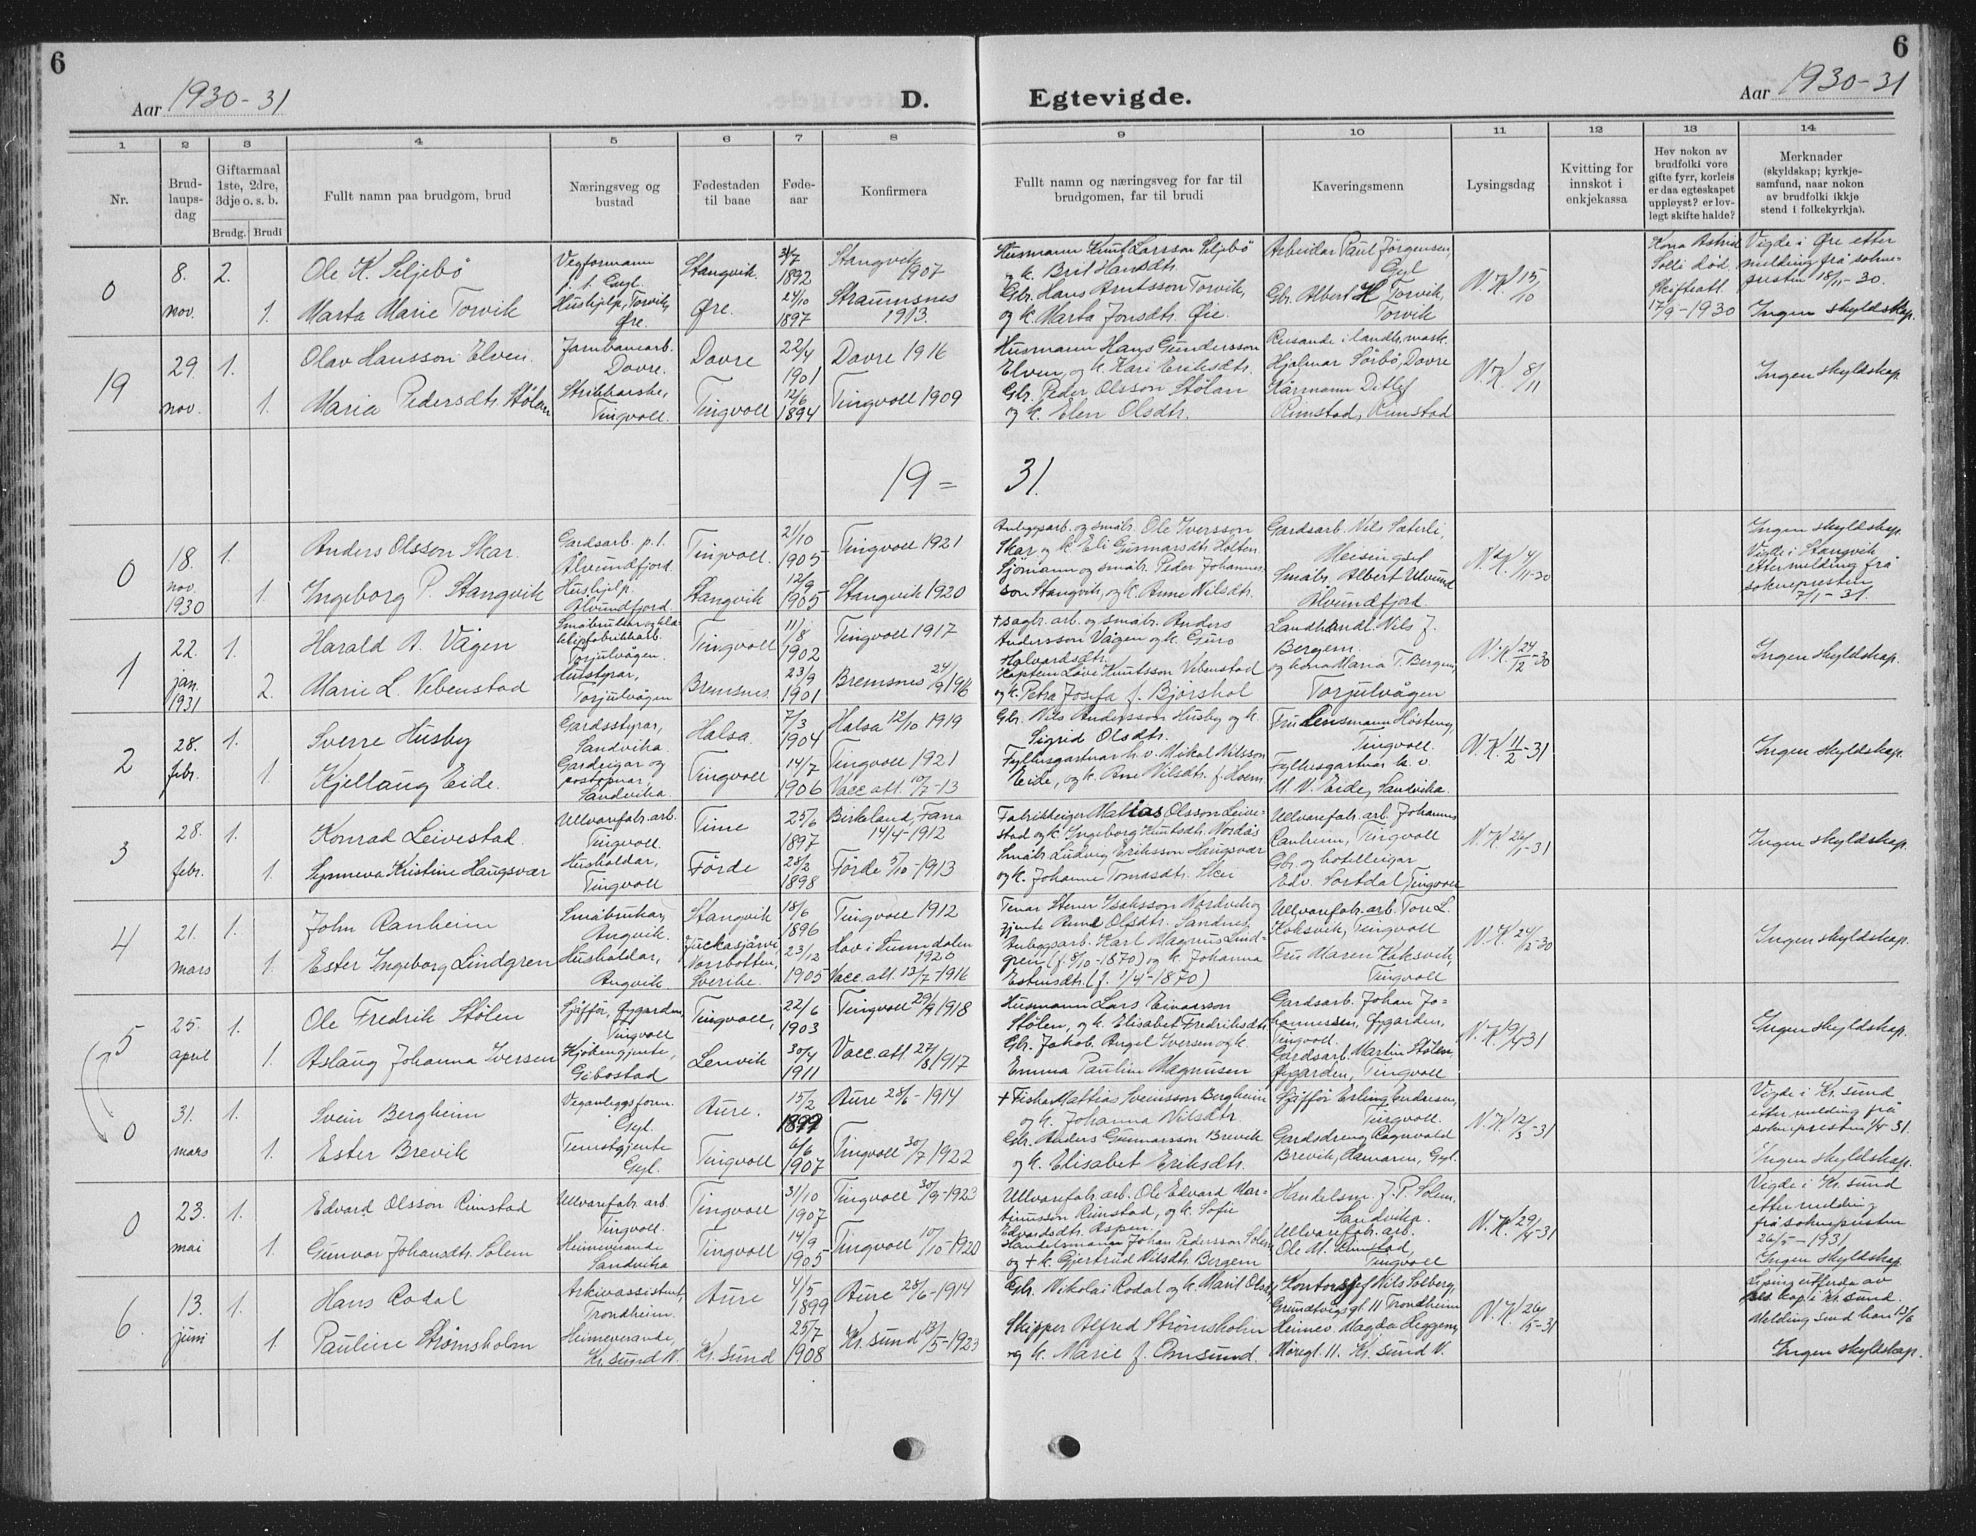 6
Aar 1930-31
D.
Egtevigde.
Aar 1930-31
6
1 2 3 4 5 6 7 8 9 10 11 12 13 14
Nr.
Brud-
laups-
dag
Giftarmaal
1ste, 2dre,
3dje o. s. b.
Brudg. Brudi
Fullt namn paa brudgom, brud
Næringsveg og
bustad
Fødestaden
til baae
Føde-
aar
Konfirmera
Fullt namn og næringsveg for far til
brudgomen, far til brudi
Kaveringsmenn
Lysingsdag
Kvitting for
innskot i
enkjekassa
Hev nokon av
brudfolki vore
gifte fyrr, korleis
er daa egteskapet
uppløyst? er lov-
legt skifte halde?
Merknader
(skyldskap; kyrkje-
samfund, naar nokon
av brudfolki ikkje
stend i folkekyrkja).
0
8.
nov.
2.
Ole K. Seljebö
Vegformann
p. t. Gyl.
Stangvik
31/7
1892
Stangvik
1907
Husmann Knut Larsson Seljebö
og k. Brit Hansdtr.
Arbeidar Paul Jörgensen,
Gyl
N.K. 15/10
Kona Astrid
Solli död.
Skifteatt.
17/9-1930
Vigde i Øre etter
melding frå sokne-
presten 18/11-30.
Ingen skyldskap.
1.
Marta Marie Torvik
Hushjelp, Torvik,
Øre.
Øre.
24/10
1897
Straumsnes
1913.
Gbr. Hans Arntsson Torvik,
og k. Marta Jonsdtr. Øie.
Gbr. Albert H. Torvik,
Torvik
19
29.
nov.
1.
Olav Hansson Elven.
Jarnbanearb.
Dovre.
Dovre
22/4
1901
Dovre 1916
Husmann Hans Gundersson
Elven, og k. Kari Eriksdtr.
Reisande i landb. mask.
Hjalmar Sörbö, Dovre
N.K. 8/11
Ingen skyldskap.
1.
Maria Pedersdtr. Stölen
Tingvoll.
Tingvoll
12/6
1894
Tingvoll 1909
Gbr. Peder Olsson Stölan
og k. Elen Olsdtr.
Kårmann Ditlef
Rimstad, Rimstad
19 = 31.
0
18.
nov.
1930
1.
Anders Olsson Skar.
Gardsarb. p. t.
Ålvundfjord.
Tingvoll.
21/10
1905
Tingvoll 1921
Anleggsarb. og småbr. Ole Iversson
Skar og k. Eli Gunnarsdtr. Holten
Gardsarb. Nils Sæterli,
Meisingset
N.K. 4/11-30
Ingen skyldskap.
Vigde i Stangvik
etter melding frå
soknepresten
7/1-31.
1.
Ingeborg P. Stangvik
Hushjelp.
Ålvundfjord.
Stangvik
12/9
1905
Stangvik 1920
Sjömann og småbr. Peder Johannes-
son Stangvik, og k. Anne Nilsdtr.
Småbr. Albert Ulvund
Ålvundfjord
1
22.
jan.
1931
1.
Harald A. Vågen
Torjulvågen.
Tingvoll
11/8
1902
Tingvoll 1917
+ sagbr. arb. og småbr. Anders
Andersson Vågen og k. Guro
Halvardsdtr.
Landhandl. Nils J.
Bergem.
N.K. 24/12-30
Ingen skyldskap.
2.
Marie L. Vebenstad
Husstyrar,
Torjulvågen
Bremsnes.
23/9
1901
Bremsnes 24/9 1916
Kaptein Love Knutsson Vebenstad
og k. Petra Josefa f. Bjørshol
og kona Maria T. Bergem,
Torjulvågen
2
28.
febr.
1.
Sverre Husby
Gardsstyrar,
Sandvika
Halsa.
7/3
1904
Halsa 12/10 1919
Gbr. Nils Andersson Husby og k.
Sigrid Olsdtr.
Fru Lensmann Høsteng,
Tingvoll.
N.K. 11/2-31
Ingen skyldskap.
1
Kjellaug Eide.
Gardeigar og
postopnar,
Sandvika
Tingvoll
14/7
1906
Tingvoll 1921
Vacc. att. 10/7-13
Fylkesgartnar k. v. Mikal Nilsson
Eide, og k. Ane Nilsdtr. f. Hoem
Fylkesgartnar k. v.
M. N. Eide, Sandvika.
3
28.
febr.
1.
Konrad Leivestad
Ullvarefabr. arb.
Tingvoll.
Time
25/6
1897
Birkeland, Fana
14/4-1912
Fabrikkeigar Mathias Olsson Leive-
stad og k. Ingeborg Knutsdtr. Nordås
Ullvarefabr. arb. Johannes
Ranheim, Tingvoll
N.K. 26/1-31
Ingen skyldskap.
1.
Synneva Kristine Haugsvær
Husholdar,
Tingvoll
Förde
28/2
1898
Förde 5/10-1913
Småbr. Ludvig Eriksson Haugsvær
og k. Johanne Tomasdtr. Skei
Gbr. og hotelleigar
Edv. Sortdal, Tingvoll
4
21.
mars
1.
John Ranheim
Småbrukar,
Angvik.
Stangvik
18/6
1896
Tingvoll 1912
Ullvarefabr. arb. Tore L.
Koksvik, Tingvoll
N.K. 24/12-30
Ingen skyldskap.
1.
Ester Ingeborg Lindgren
Husholdar,
Angvik
Juckasjärvi,
Norrbotten,
Sverike.
23/12
1905
Hov i Sunndalen
1920
Vacc. att. 13/7-1916
Anleggsarb. Karl Magnus Lind-
gren (f. 8/10-1870) og k. Johanna
(f. 1/4-1870)
Fru Maren Koksvik,
Tingvoll
5
25.
april
1.
Ole Fredrik Stölen
Sjåfför, Øygarden,
Tingvoll
Tingvoll,
22/6
1903
Tingvoll 29/9 1918
Husmann Lars Einarsson
Stölen, og k. Elisabet Fredriksdtr.
Gardsarb. Johan Jo-
hannessen, Øygarden,
Tingvoll.
N.K. 9/4-31
Ingen skyldskap.
1.
Aslaug Johanna Iversen
Kjökengjente,
Gibostad
Lenvik
30/4
1911
Vacc. att. 27/8 1917
Gbr. Jakob Angel Iversen og k.
Emma Pauline Magnusen
Gardsarb. Martin Stölen,
Øygarden, Tingvoll
0
31.
mars
1.
Svein Bergheim
Veganleggsform.
Gyl.
Aure.
15/2
1899
Aure 28/6-1914
+ Fiskar Mathias Sveinsson Bergheim
og k. Johanna Nilsdtr
Sjåfför Erling Endresen,
Tingvoll.
N.K. 12/3-31
Vigde i Kr.sund
etter melding frå
soknepresten 1/4-31.
Ingen skyldskap.
1.
Ester Brevik
Tenestgjente
Gyl.
Tingvoll
6/6
1907
Tingvoll 30/7 1922
Gbr. Anders Gunnarsson Brevik
og k. Elisabet Eriksdtr.
Gardsdreng Ragnvald
Brevik, Hamaren, Gyl.
0
23.
mai
1.
Edvard Olsson Rimstad
Ullvarefabr. arb.
Tingvoll.
Tingvoll
31/10
1907
Tingvoll 30/9-1923
Ullvarefabr. arb. Ole Edvard Mar-
tinusson Rimstad, og k. Sofie
Edvardsdtr. Aspen.
Handelsm. J. P. Solem,
Sandvika.
N.K. 29/4-31
Vigde i Kr.sund
etter melding
frå soknepresten
26/5-1931
Ingen skyldskap
1.
Gunvor Johansdtr. Solem
Heimeverande
Sandvika
Tingvoll
14/9
1905
Tingvoll 10/10-1920
Handelsmann Johan Pedersson Solem
og + k. Gjertrud Nilsdtr. Bergem
Ullvarefabr. arb.
Ole M. Rimstad,
Tingvoll
6.
13.
juni
1.
Hans Rodal
Arkivassistent,
Trondheim.
Aure
4/5
1899
Aure 28/6-1914
Gbr. Nikolai Rodal og k. Marit Olsdtr.
Kontorsjef Nils Solberg,
Grundtvigsgt. 11 Trondheim
N.K. 26/5-31
Lysing utferda av
res. kap. i Kr.sund.
Melding send han 13/6
Ingen skyldskap.
1.
Pauline Strömsholm
Heimeverande,
Kr.sund N.
Kr.sund
25/7
1908
Kr.sund 13/5-1923
Skipper Alfred Strömsholm
og k. Marie f. Omsund.
Heimev. Magda Heggem,
Möregt. 11. Kr.sund N.